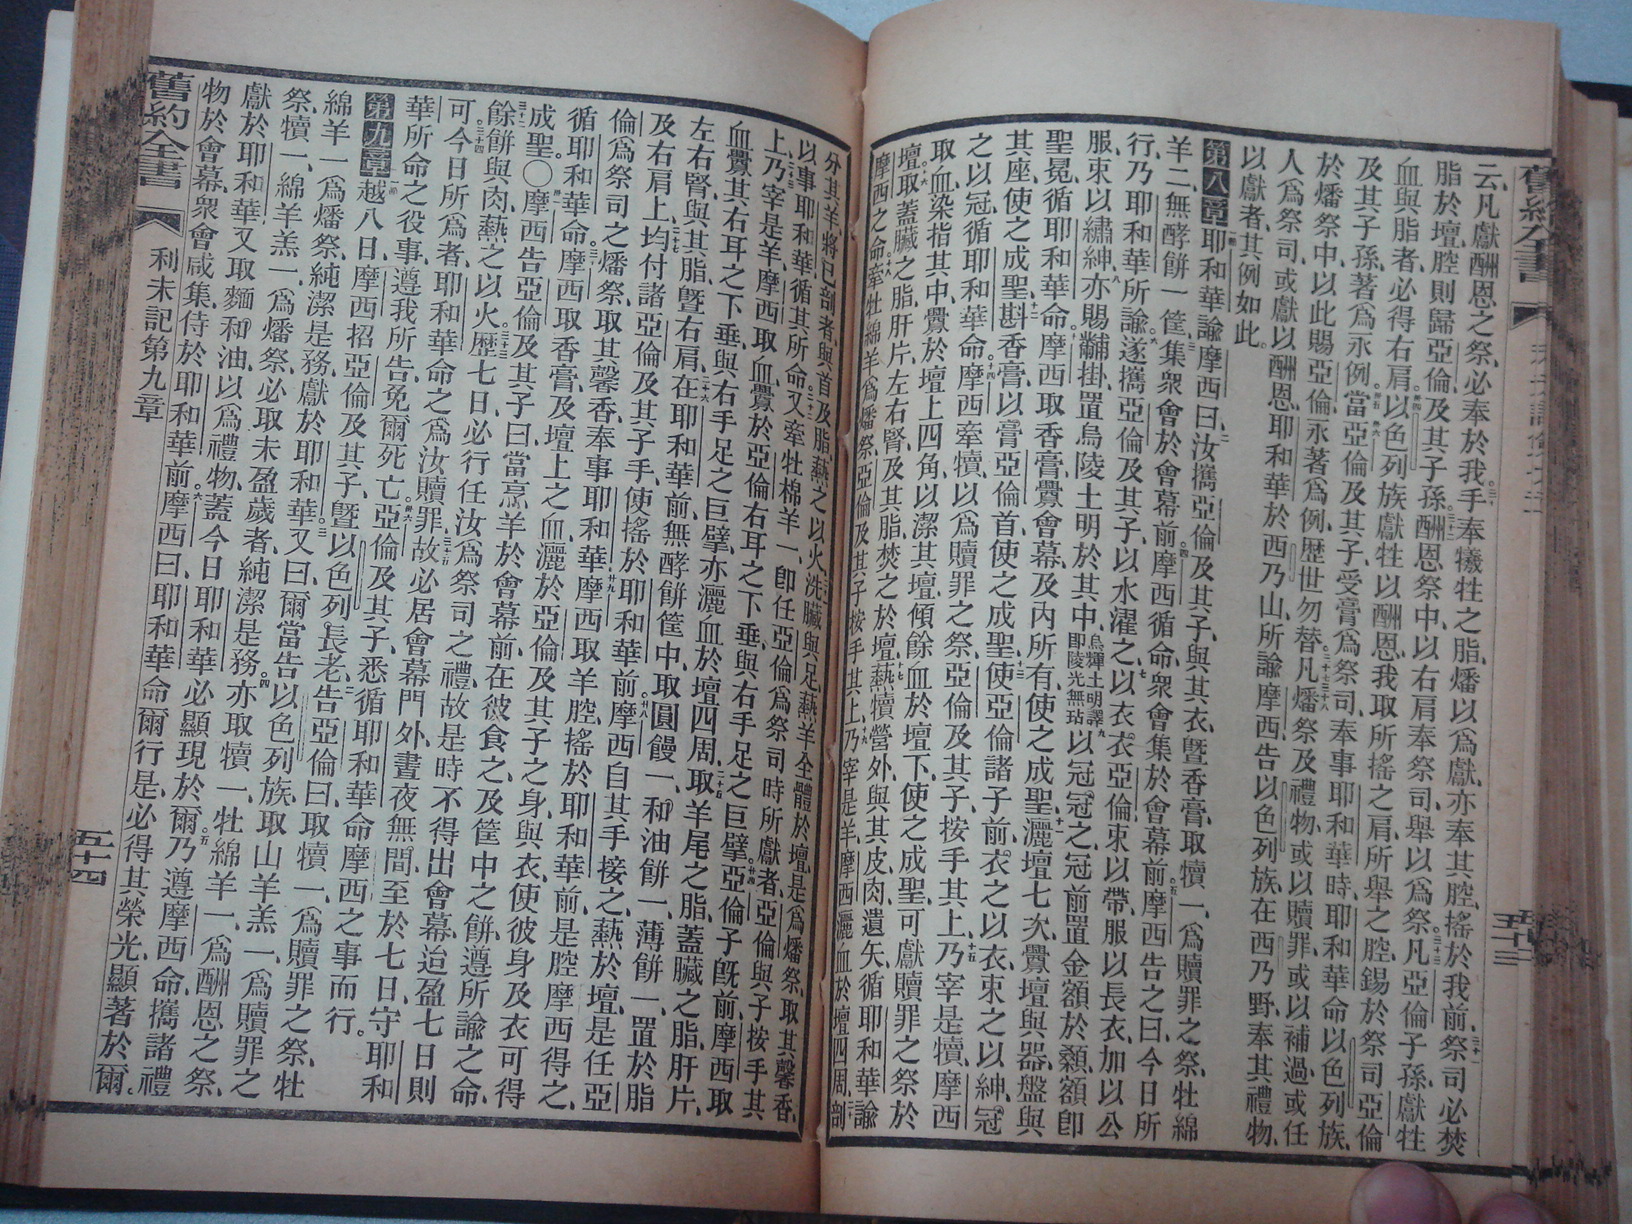 云凡獻酬恩之祭必奉於我手奉犧牲之脂燔以爲獻亦奉其腔搖於我前祭司必焚
脂於壇腔則歸亞倫及其子孫酬恩祭中以右肩奉祭司舉以爲祭凡亞倫子孫獻牲
血與脂者必得右肩以色列族獻牲以酬恩我取所搖之肩所舉之腔錫於祭司亞倫
及其子孫著爲永例當亞倫及其子受膏爲祭司奉事耶和華時耶和華命以色列族
於燔祭中以此賜亞倫永著爲例歷世勿替凡燔祭及禮物或以贖罪或以補過或任
人爲祭司或獻以酬恩耶和華於西乃山所諭摩西告以色列族在西乃野奉其禮物
以獻者其例如此
第八章 耶和華諭摩西曰汝攜亞倫及其子與其衣曁香膏取犢一爲贖罪之祭牡綿
羊二無酵餅一筐集衆會於會幕前摩西循命衆會集於會幕前摩西告之曰今日所
行乃耶和華所諭遂攜亞倫及其子以水濯之以衣衣亞倫束以帶服以長衣加以公
服束以繡紳亦賜黼掛置烏陵土明於其中烏陵土明譯即輝光無玷以冠冠之冠前置金額於顙額卽
聖冕循耶和華命摩西取香膏釁會幕及內所有使之成聖灑壇七次釁壇與器盤與
其座使之成聖斟香膏以膏亞倫首使之成聖使亞倫諸子前衣之以衣束之以紳冠
之以冠循耶和華命摩西牽犢以爲贖罪之祭亞倫及其子按手其上乃宰是犢摩西
取血染指其中釁於壇上四角以潔其壇傾餘血於壇下使之成聖可獻贖罪之祭於
壇取蓋臟之脂肝片左右腎及其脂焚之於壇爇犢營外與其皮肉遺矢循耶和華諭
摩西之命牽牡綿羊爲燔祭亞倫及其子按手其上乃宰是羊摩西灑血於壇四周剖
分其羊將已剖者與首及脂爇之以火洗臟與足爇羊全體於壇是爲燔祭取其馨香
以事耶和華循其所命又牽牡棉羊一卽任亞倫爲祭司時所獻者亞倫與子按手其
上乃宰是羊摩西取血釁於亞倫右耳之下垂與右手足之巨擘亞倫子旣前摩西取
血釁其右耳之下垂與右手足之巨擘亦灑血於壇四周取羊尾之脂蓋臟之脂肝片
左右腎與其脂曁右肩在耶和華前無酵餅筐中取圓饅一和油餅一薄餅一置於脂
及右肩上均付諸亞倫及其子手使搖於耶和華前摩西自其手接之爇於壇是任亞
倫爲祭司之燔祭取其馨香奉事耶和華摩西取羊腔搖於耶和華前是腔摩西得之
循耶和華命摩西取香膏及壇上之血灑於亞倫及其子之身與衣使彼身及衣可得
成聖〇摩西告亞倫及其子曰當烹羊於會幕前在彼食之及筐中之餅遵所諭之命
餘餅與肉爇之以火歷七日必行任汝爲祭司之禮故是時不得出會幕迨盈七日則
可今日所爲者耶和華命之爲汝贖罪故必居會幕門外晝夜無間至於七日守耶和
華所命之役事遵我所告免爾死亡亞倫及其子悉循耶和華命摩西之事而行
第九章 越八日摩西招亞倫及其子曁以色列長老告亞倫曰取犢一爲贖罪之祭牡
綿羊一爲燔祭純潔是務獻於耶和華又曰爾當告以色列族取山羊羔一爲贖罪之
祭犢一綿羊羔一爲燔祭必取未盈歲者純潔是務亦取犢一牡綿羊一爲酬恩之祭
獻於耶和華又取麵和油以爲禮物蓋今日耶和華必顯現於爾乃遵摩西命攜諸禮
物於會幕衆會咸集侍於耶和華前摩西曰耶和華命爾行是必得其榮光顯著於爾
舊約全書
利未記第九章
五十四